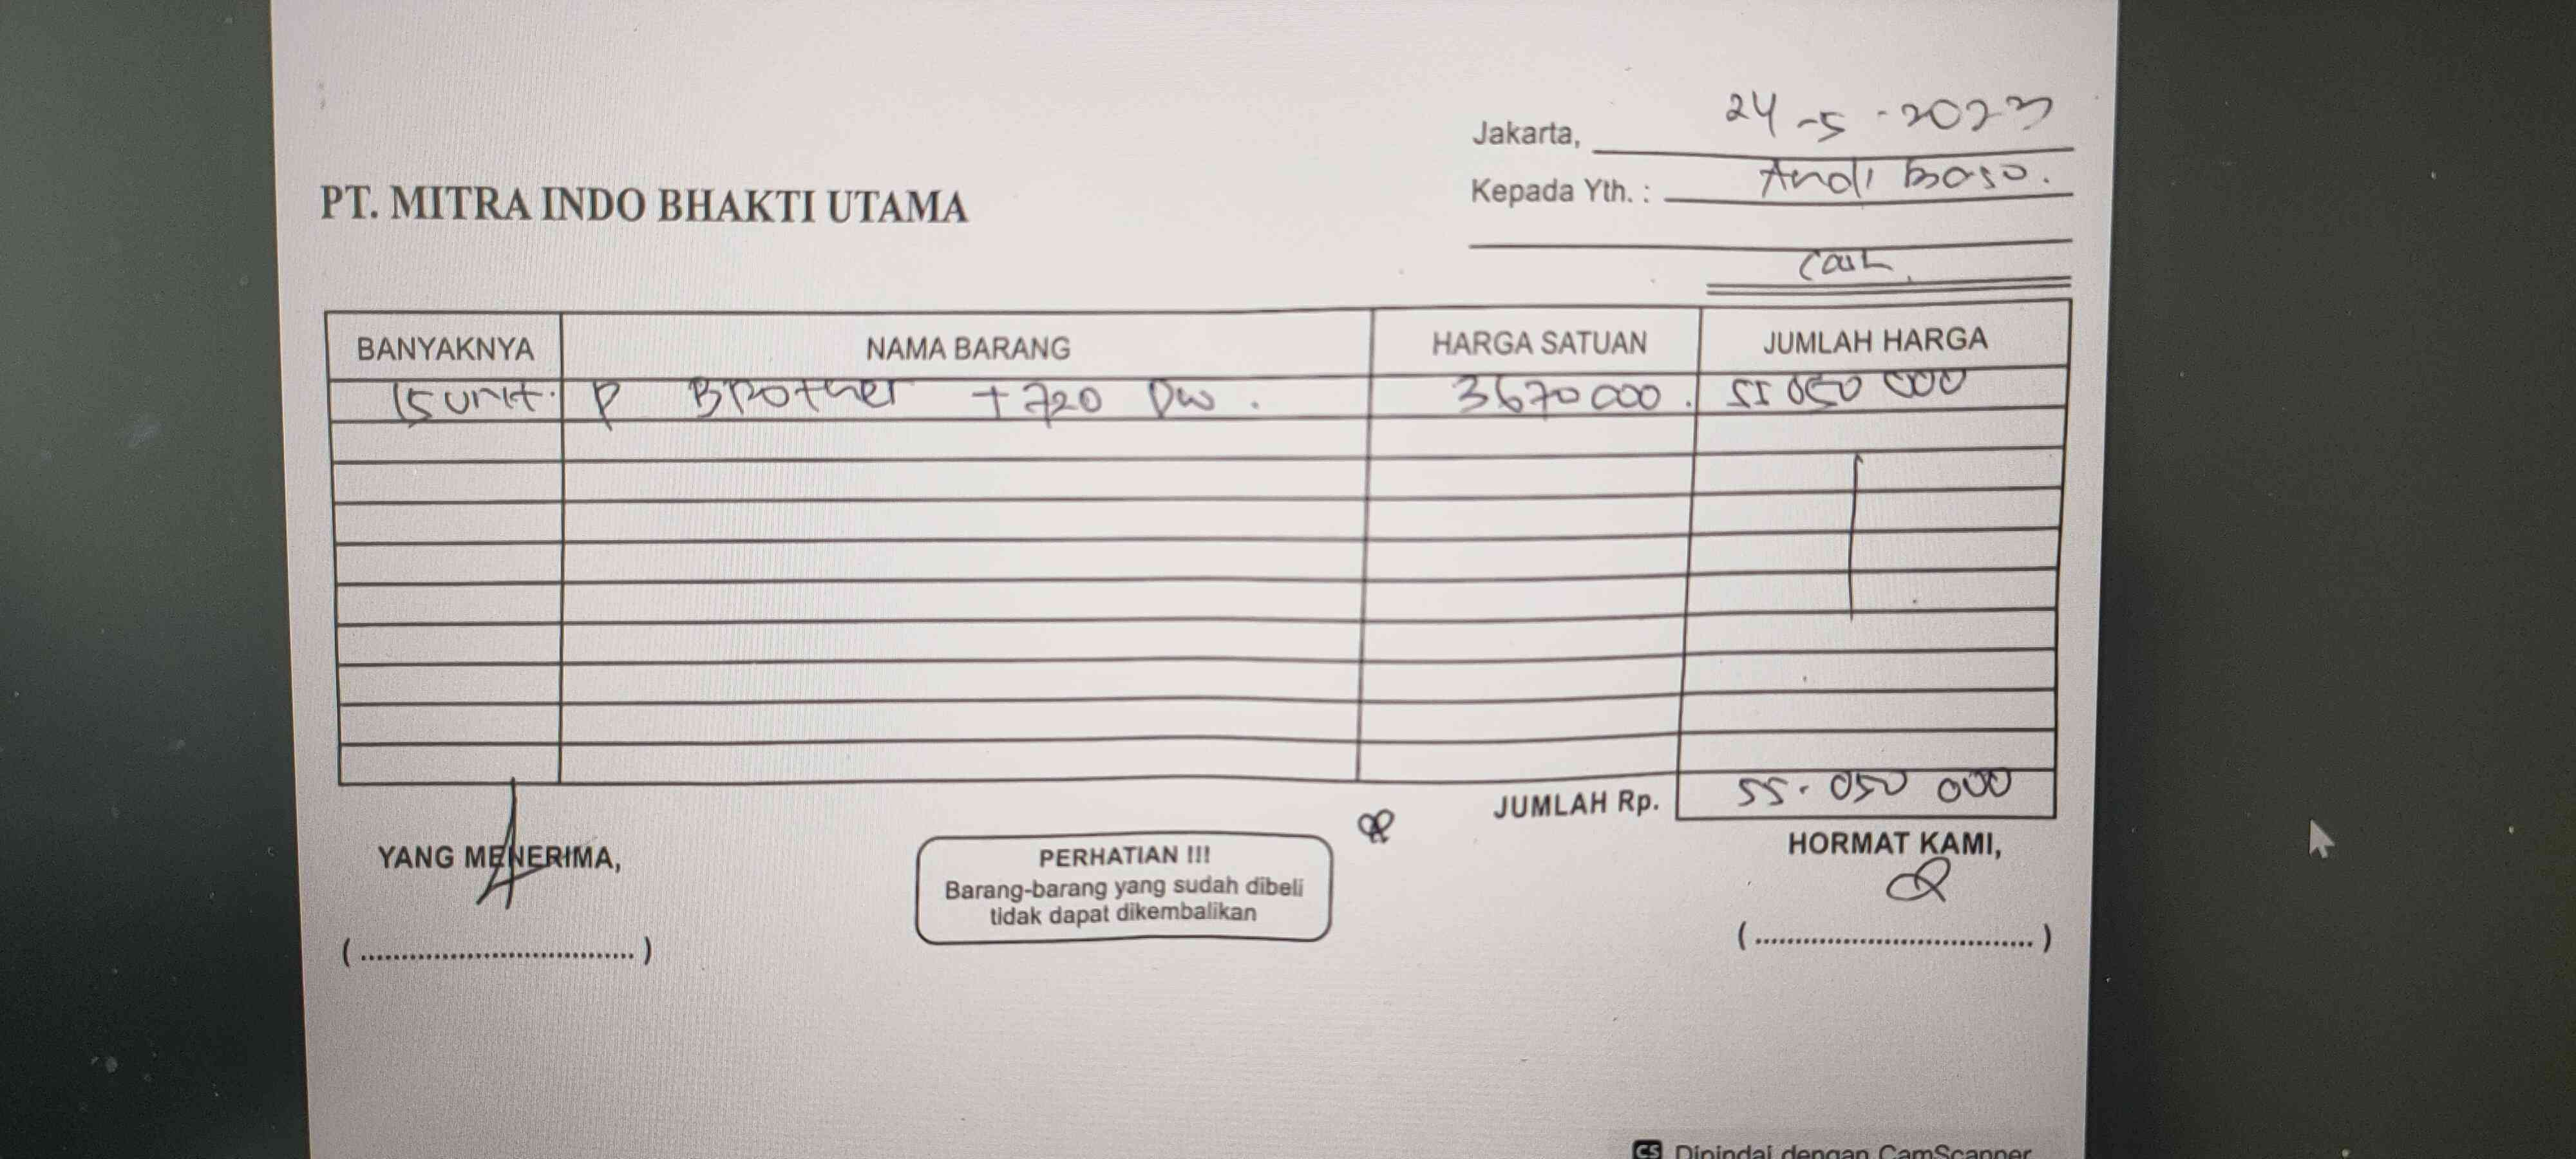 Jakarta, 24-5-2023
Kepada Yth. : Andi Baso.
PT. MITRA INDO BHAKTI UTAMA
Cash
BANYAKNYA NAMA BARANG HARGA SATUAN JUMLAH HARGA
15 unit. P Brother T720 DW. 3670000. 55 050 000
JUMLAH Rp. 55.050 000
YANG MENERIMA,
PERHATIAN !!!
Barang-barang yang sudah dibeli
tidak dapat dikembalikan
HORMAT KAMI,
(..................................)
(..................................)
CS Dipindai dengan CamScanner